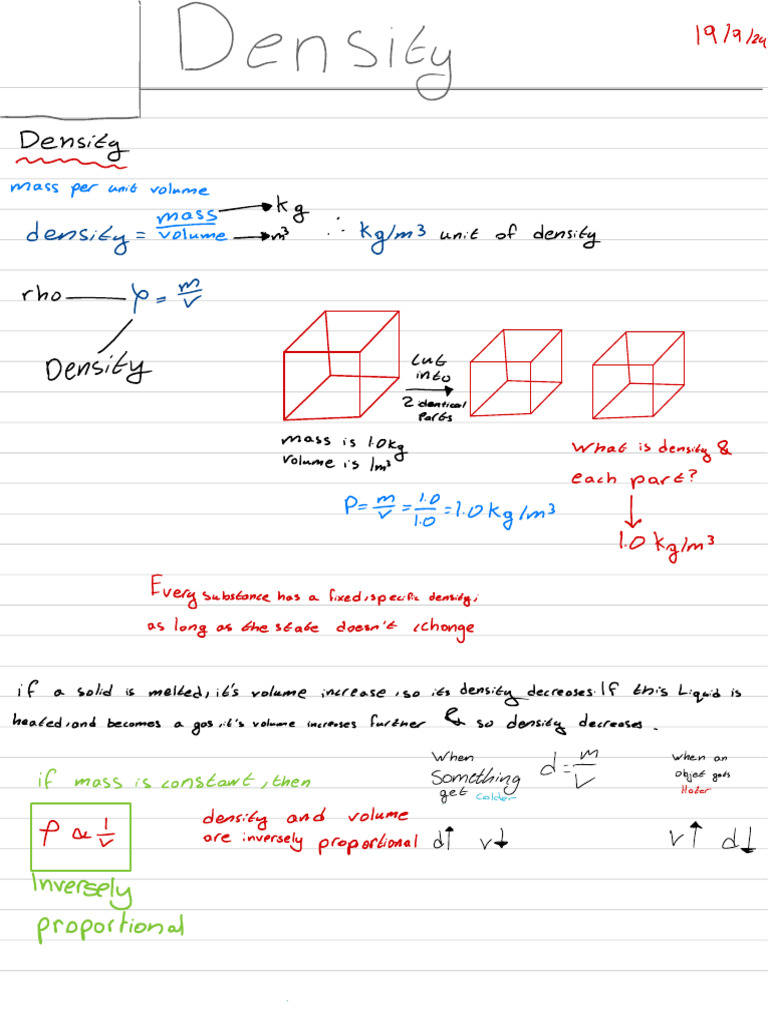 Density
19/9/24
Density
mass per unit volume
density = mass/volume → kg → m³ ∴ kg/m³ unit of density
rho ρ = m/v
Density
Cut
into
2 identical
Parts
mass is 1.0kg
volume is 1m³
What is density &
each part?
P = m/v = 1.0/1.0 = 1.0 kg/m³
1.0 kg/m³
Every substance has a fixed, specific density,
as long as the state doesn't change
if a solid is melted, it's volume increase, so its density decreases. If this Liquid is
heated, and becomes a gas, it's volume increases further & so density decreases.
if mass is constant, then
ρ ∝ 1/v
Inversely
proportional
density and volume
are inversely proportional
When
Something
get Colder
d = m/v
d↑ v↓
When an
Objet gets
Hoter
v↑ d↓